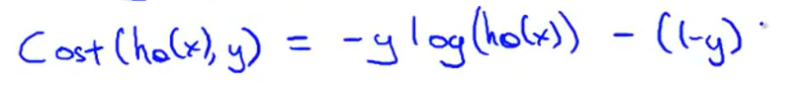 Cost(hθ(x), y) = -y log(hθ(x)) - (1-y)